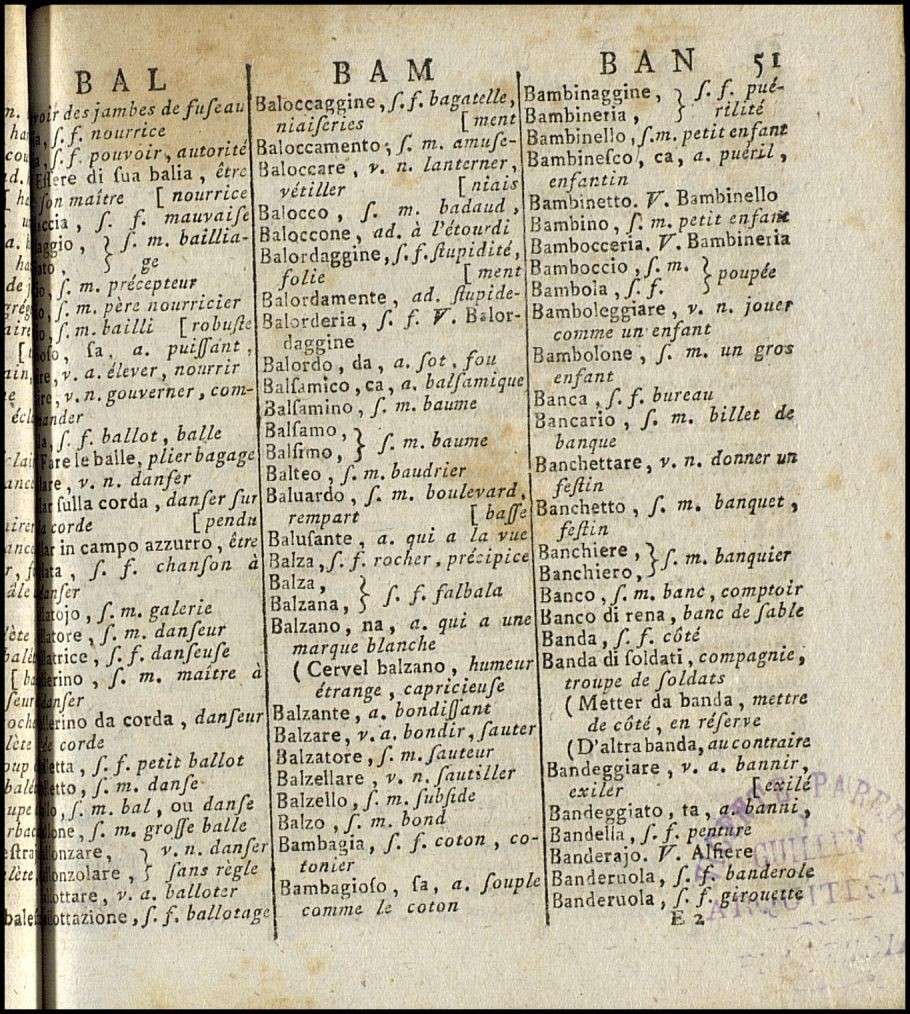 BAL
voir des jambes de fuſeau
ſ. f. nourrice
ſ. f. pouvoir, autorité
Eſſere di ſua balia, être
ſon maître [ nourrice
ſ. f. mauvaiſe
} ſ. m. baillia-
} ge
ſ. m. précepteur
ſ. m. père nourricier
ſ. m. bailli [ robuſte
ſa, a. puiſſant,
v. a. élever, nourrir
v. n. gouverner, com-
mander
ſ. f. ballot, balle
Fare le balle, plier bagage
v. n. danſer
ſulla corda, danſer ſur
la corde [ pendu
in campo azzurro, être
ſ. f. chanſon à
danſer
ſ. m. galerie
ſ. m. danſeur
ſ. f. danſeuſe
ſ. m. maître à
danſer
da corda, danſeur
de corde
ſ. f. petit ballot
ſ. m. danſe
ſ. m. bal, ou danſe
ſ. m. groſſe balle
} v. n. danſer
} ſans règle
v. a. balloter
ſ. f. ballotage
BAM
Baloccaggine, ſ. f. bagatelle,
niaiſeries [ ment
Baloccamento, ſ. m. amuſe-
Baloccare, v. n. lanterner,
vétiller [ niais
Balocco, ſ. m. badaud,
Baloccone, ad. à l'étourdi
Balordaggine, ſ. f. ſtupidité,
folie [ ment
Balordamente, ad. ſtupide-
Balorderia, ſ. f. V. Balor-
daggine
Balordo, da, a. ſot, fou
Balſamico, ca, a. balſamique
Balſamino, ſ. m. baume
Balſamo, } ſ. m. baume
Balſimo, }
Balteo, ſ. m. baudrier
Baluardo, ſ. m. boulevard,
rempart [ baſſe
Baluſante, a. qui a la vue
Balza, ſ. f. rocher, précipice
Balza, } ſ. f. falbala
Balzana, }
Balzano, na, a. qui a une
marque blanche
( Cervel balzano, humeur
étrange, capricieuſe
Balzante, a. bondiſſant
Balzare, v. a. bondir, ſauter
Balzatore, ſ. m. ſauteur
Balzellare, v. n. ſautiller
Balzello, ſ. m. ſubſide
Balzo, ſ. m. bond
Bambagia, ſ. f. coton, co-
tonier
Bambagioſo, ſa, a. ſouple
comme le coton
BAN 51
Bambinaggine, } ſ. f. pué-
Bambineria, } rilité
Bambinello, ſ. m. petit enfant
Bambineſco, ca, a. puéril,
enfantin
Bambinetto. V. Bambinello
Bambino, ſ. m. petit enfant
Bambocceria. V. Bambineria
Bamboccio, ſ. m. } poupée
Bambola, ſ. f. }
Bamboleggiare, v. n. jouer
comme un enfant
Bambolone, ſ. m. un gros
enfant
Banca, ſ. f. bureau
Bancario, ſ. m. billet de
banque
Banchettare, v. n. donner un
feſtin
Banchetto, ſ. m. banquet,
feſtin
Banchiere, } ſ. m. banquier
Banchiero, }
Banco, ſ. m. banc, comptoir
Banco di rena, banc de ſable
Banda, ſ. f. côté
Banda di ſoldati, compagnie,
troupe de ſoldats
( Metter da banda, mettre
de côté, en réſerve
( D'altra banda, au contraire
Bandeggiare, v. a. bannir,
exiler [ exilé
Bandeggiato, ta, a. banni,
Bandella, ſ. f. penture
Banderajo. V. Alfiere
Banderuola, ſ. f. banderole
Banderuola, ſ. f. girouette
E 2